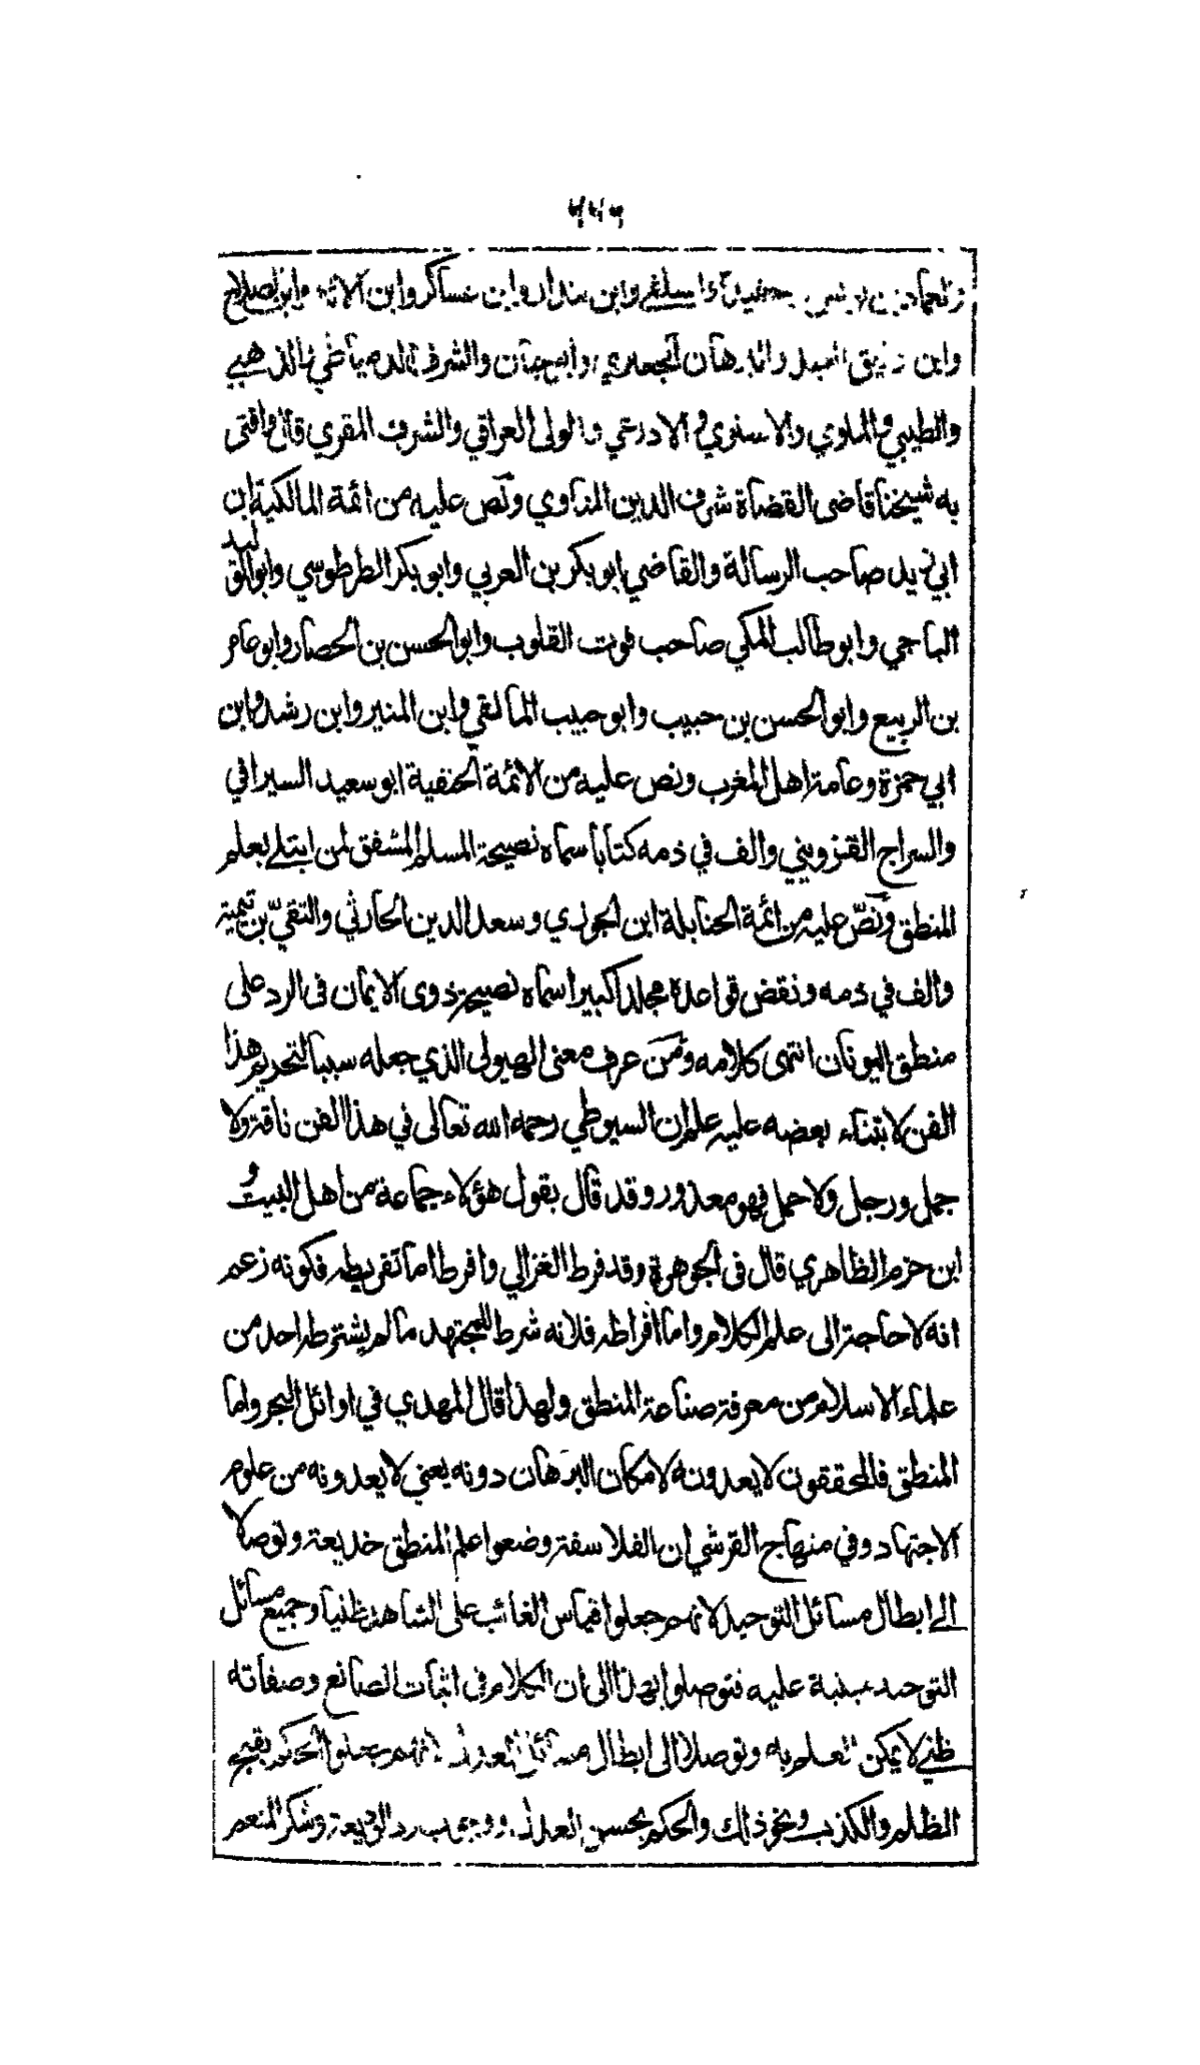 وابن عساكر وابن الاثير وابن الصلاح
وابن دقيق العيد والبرهان الجعبري وابو حيان والشرف الدمياطي والذهبي
والطيبي والملوي والاسنوي والاذرعي والولي العراقي والشرف المقري قال وافتى
به شيخنا قاضى القضاة شرف الدين المناوي ونص عليه من ائمة المالكية ابن
ابي زيد صاحب الرسالة والقاضي ابو بكر بن العربي وابو بكر الطرطوسي وابو الوليد
الباجي وابو طالب المكي صاحب قوت القلوب وابو الحسن بن الحصار وابو عامر
بن الربيع وابو الحسن بن حبيب وابو حبيب المالقي وابن المنير وابن رشد وابن
ابي حمزة وعامة اهل المغرب ونص عليه من الائمة الحنفية ابو سعيد السيرافي
والسراج القزويني والف في ذمه كتابا سماه نصيحة المسلم المشفق لمن ابتلي بعلم
المنطق ونصّ عليه من ائمة الحنابلة ابن الجوزي وسعد الدين الحارثي والتقيّ بن تيمية
والف في ذمه ونقض قواعده مجلدا كبيرا سماه نصيحة ذوى الايمان فى الرد على
منطق اليونان انتهى كلامه ومن عرف معنى الهيولى الذي جعله سببا لتحريم هذا
الفن لابتناء بعضه عليه علم ان السيوطي رحمه الله تعالى في هذا الفن ناقة ولا
جمل ورجل ولا حمل فهو معذور وقد قال بقول هؤلاء جماعة من اهل البيت و
ابن حزم الظاهري قال فى الجوهرة وقد فرط الغزالي وافرط اما تفريطه فكونه زعم
انه لا حاجة الى علم الكلام واما افراطه فلانه شرط للمجتهد ما لم يشترطه احد من
علماء الاسلام من معرفة صناعة المنطق ولهذا قال المهدي في اوائل البحر واما
المنطق فالمحققون لا يعدونه لامكان البرهان دونه يعني لا يعدونه من علوم
الاجتهاد وفي منهاج القرشي ان الفلاسفة وضعوا علم المنطق خديعة وتوصلا
الى ابطال مسائل التوحيد لانهم جعلوا قياس الغائب على الشاهد ظنيا وجميع مسائل
التوحيد مبنية عليه فتوصلوا بهذا الى ان الكلام فى اثبات الصانع وصفاته
ظني لا يمكن العلم به وتوصلا الى ابطال مسائل العدل لانهم جعلوا الحكم بقبح
الظلم والكذب ونحو ذلك والحكم بحسن العدل ووجوب رد الوديعة وشكر المنعم